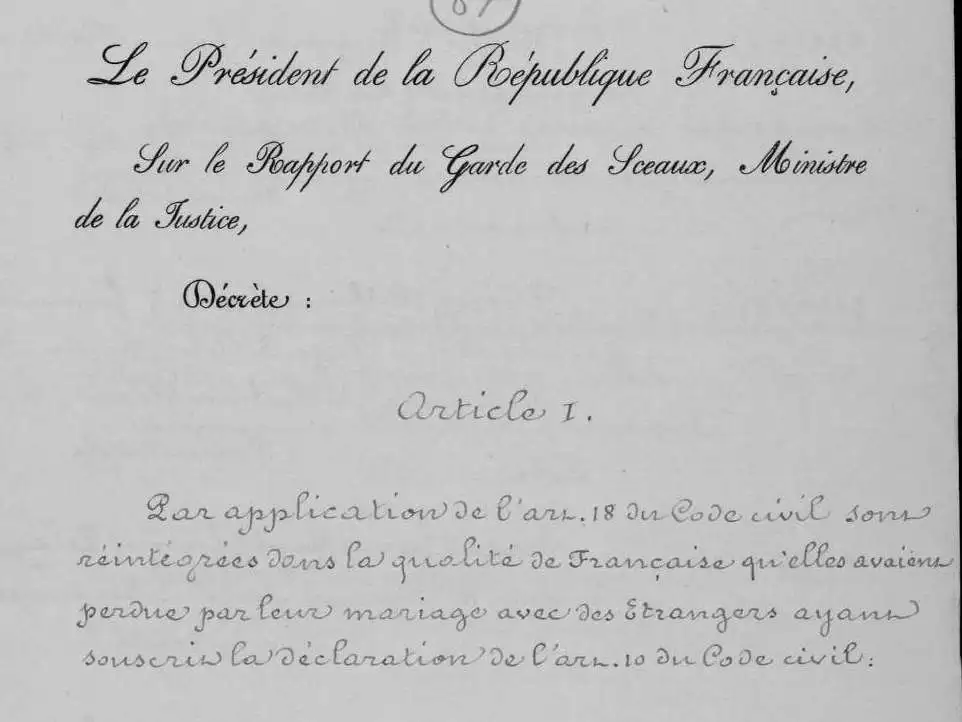 87
Le Président de la République Française,
Sur le Rapport du Garde des Sceaux, Ministre
de la Justice,
Décrète :
Article 1.
Par application de l'art. 18 du Code civil sont
réintégrées dans la qualité de Française qu'elles avaient
perdue par leur mariage avec des Etrangers ayant
souscrit la déclaration de l'art. 10 du Code civil :